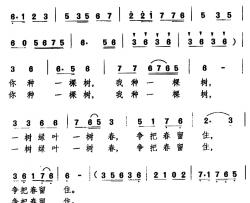 6·123 53567 221176 535
605675 6·56 3636 3636)
36 6·56 776765 6
你种 一棵树， 我种一棵 树，
你种 一棵树， 我种一棵 树，
3366 7653 3356 2·3
一树绿叶 一树春， 争把春留 住，
一树绿叶 一树春， 争把春留 住，
36176 6- (35636 2102 7·1765
争把春留 住。
争把春留 住。